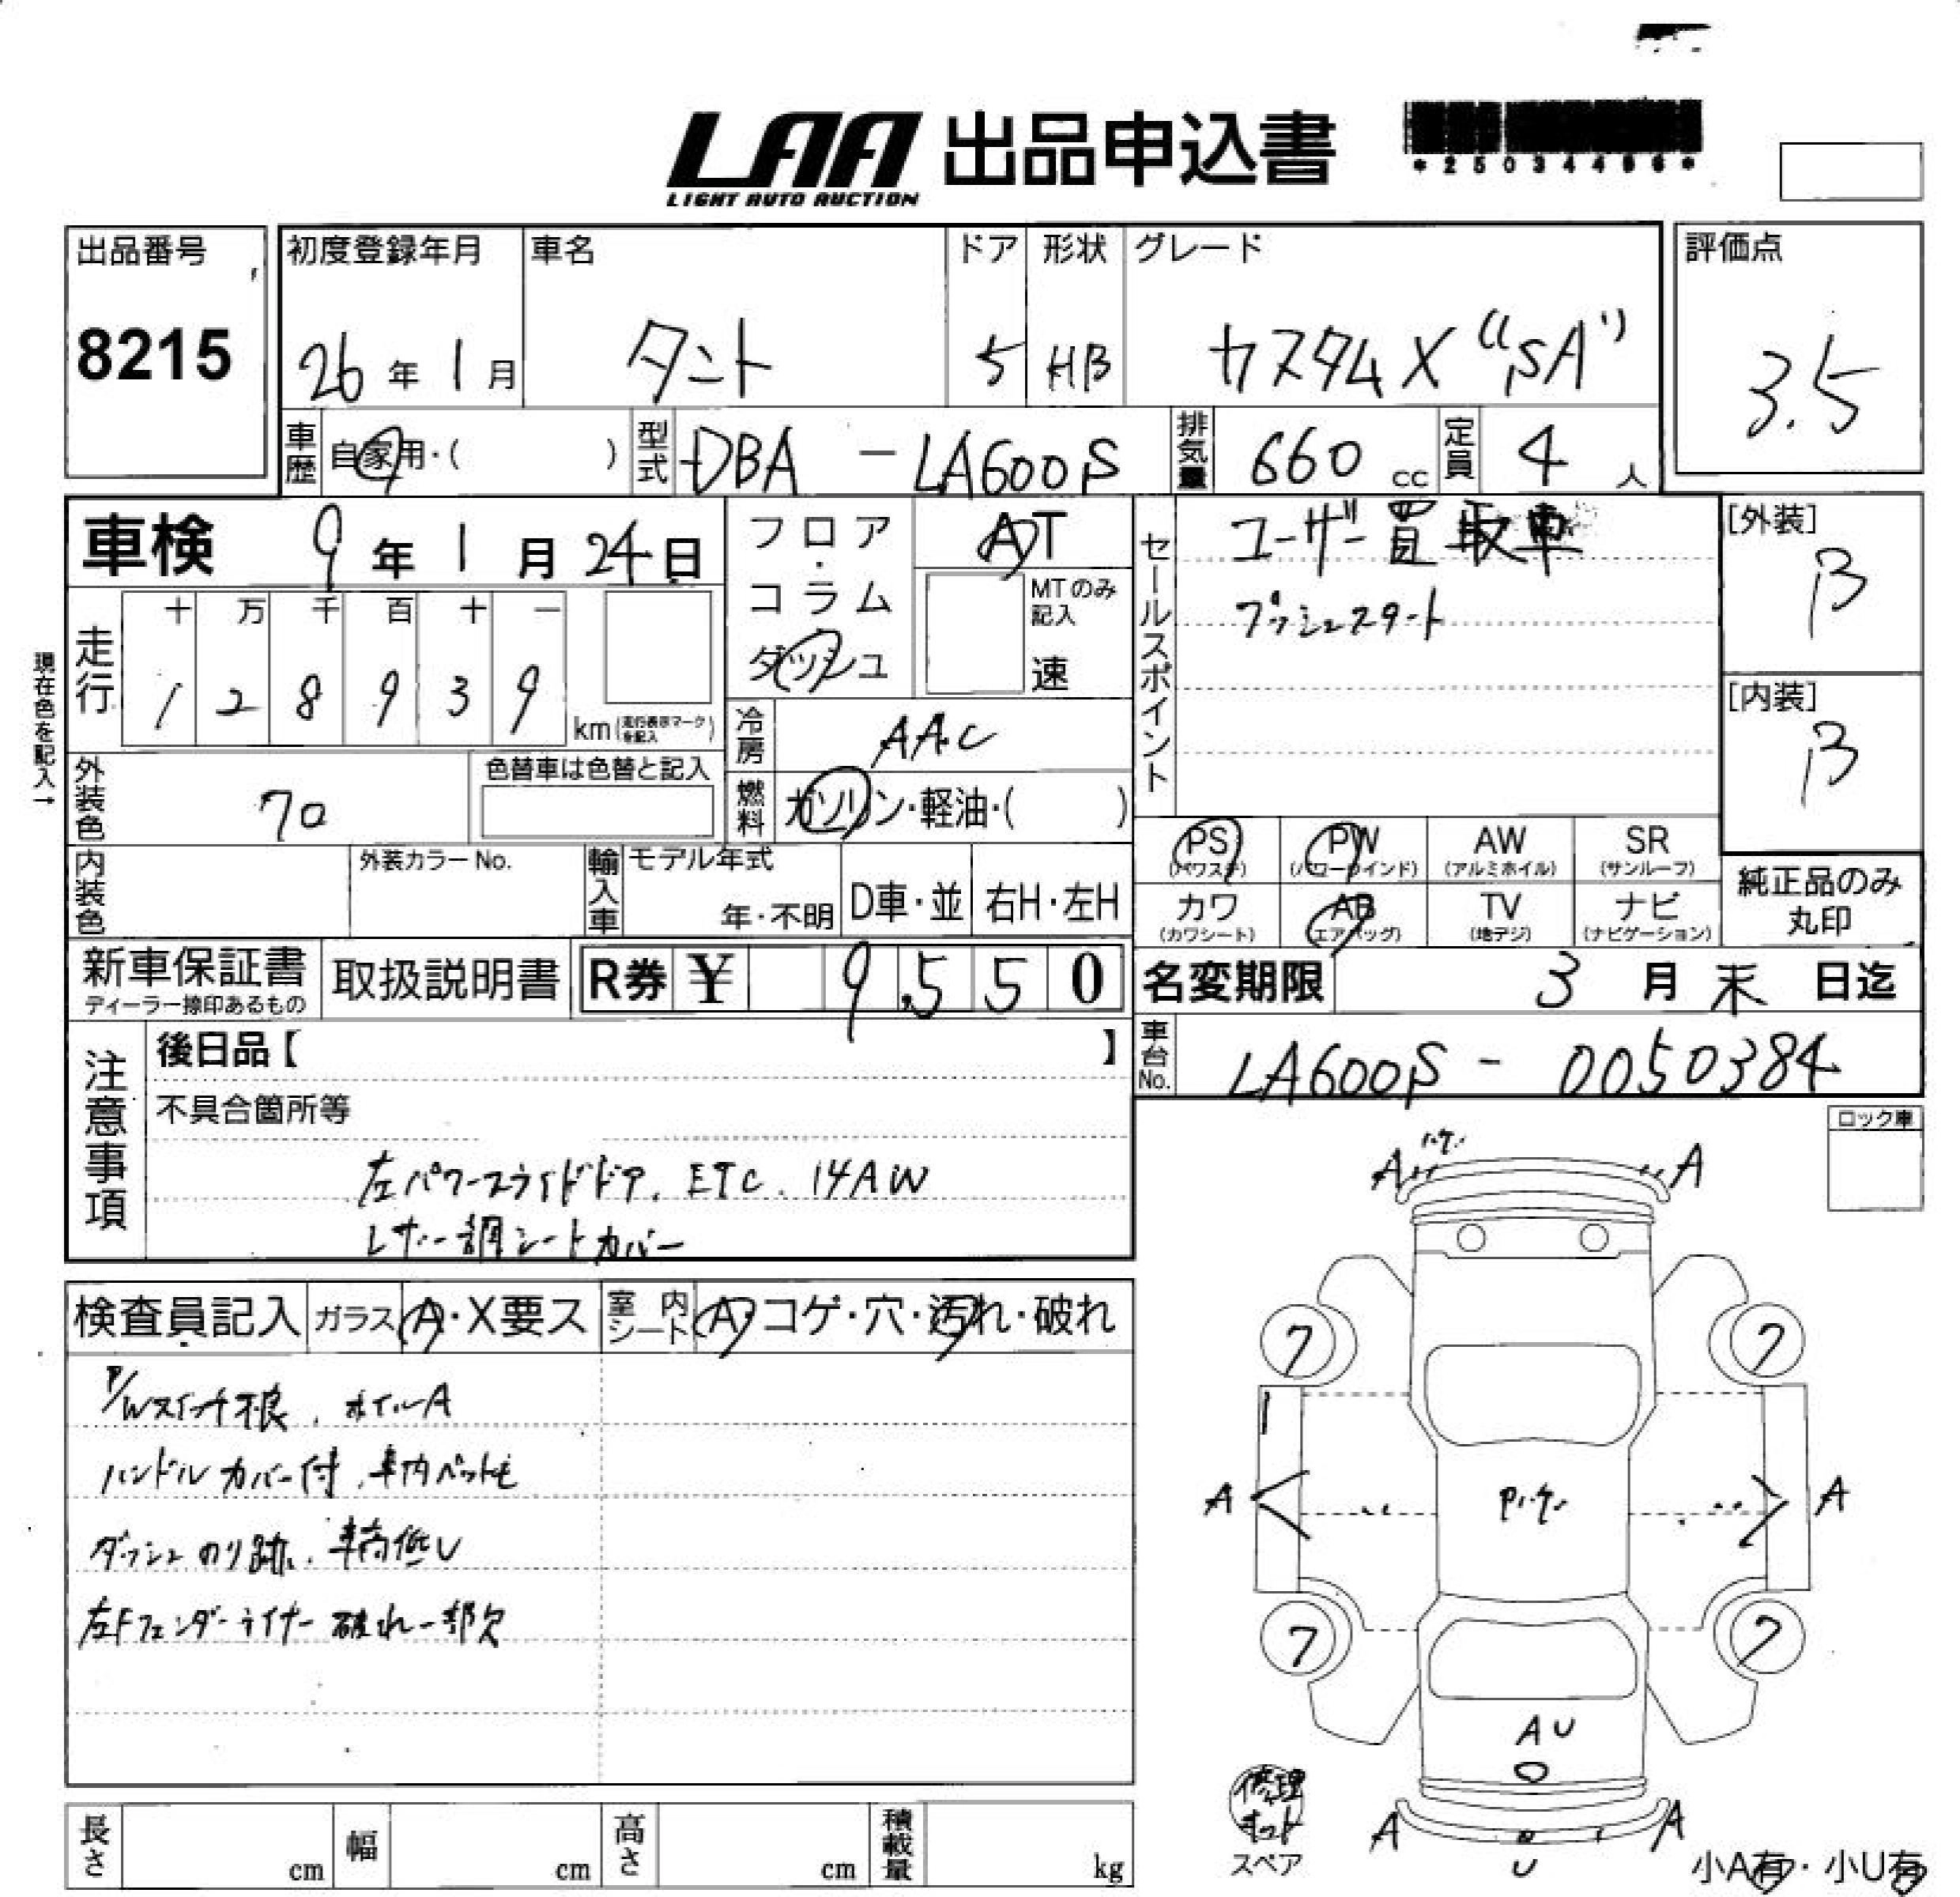 LAA 出品申込書
LIGHT AUTO AUCTION
*25034496*
出品番号
8215
初度登録年月
26年1月
車名
タント
ドア
5
形状
HB
グレード
カスタムX "SA"
評価点
3.5
車歴
自家用・( )
型式
DBA - LA600S
排気量
660 cc
定員
4人
車検 9年1月24日
フロア・コラム
ダッシュ
AT
MTのみ記入
速
セールスポイント
ユーザー買取車
プッシュスタート
[外装]
B
[内装]
B
現在色を記入→
走行
十 万 千 百 十 一
1 2 8 9 3 9
km (走行表示マークを記入)
冷房
AAC
外装色
70
色替車は色替と記入
燃料
ガソリン・軽油・( )
PS (パワステ)
PW (パワーウインド)
AW (アルミホイル)
SR (サンルーフ)
カワ (カワシート)
AB (エアバッグ)
TV (地デジ)
ナビ (ナビゲーション)
純正品のみ丸印
内装色
外装カラーNo.
輸入車
モデル年式
年・不明
D車・並
右H・左H
新車保証書
ディーラー捺印あるもの
取扱説明書
R券 ¥ 9,550
名変期限 3月末日迄
車台No.
LA600S - 0050384
注意事項
後日品【 】
不具合箇所等
左パワースライドドア. ETC. 14AW
レザー調シートカバー
ロック車
検査員記入
ガラス A・X要ス
室内シート A・コゲ・穴・汚れ・破れ
P/Wスイッチ不良, ホイールA
ハンドルカバー付, 車内ペット毛
ダッシュのり跡, 車高低し
左Fフェンダーライナー破れ一部欠
A ハゲ A
7 7
A A
7 7
A U
A U A
修理キット
スペア
小A有・小U有
長さ cm
幅 cm
高さ cm
積載量 kg